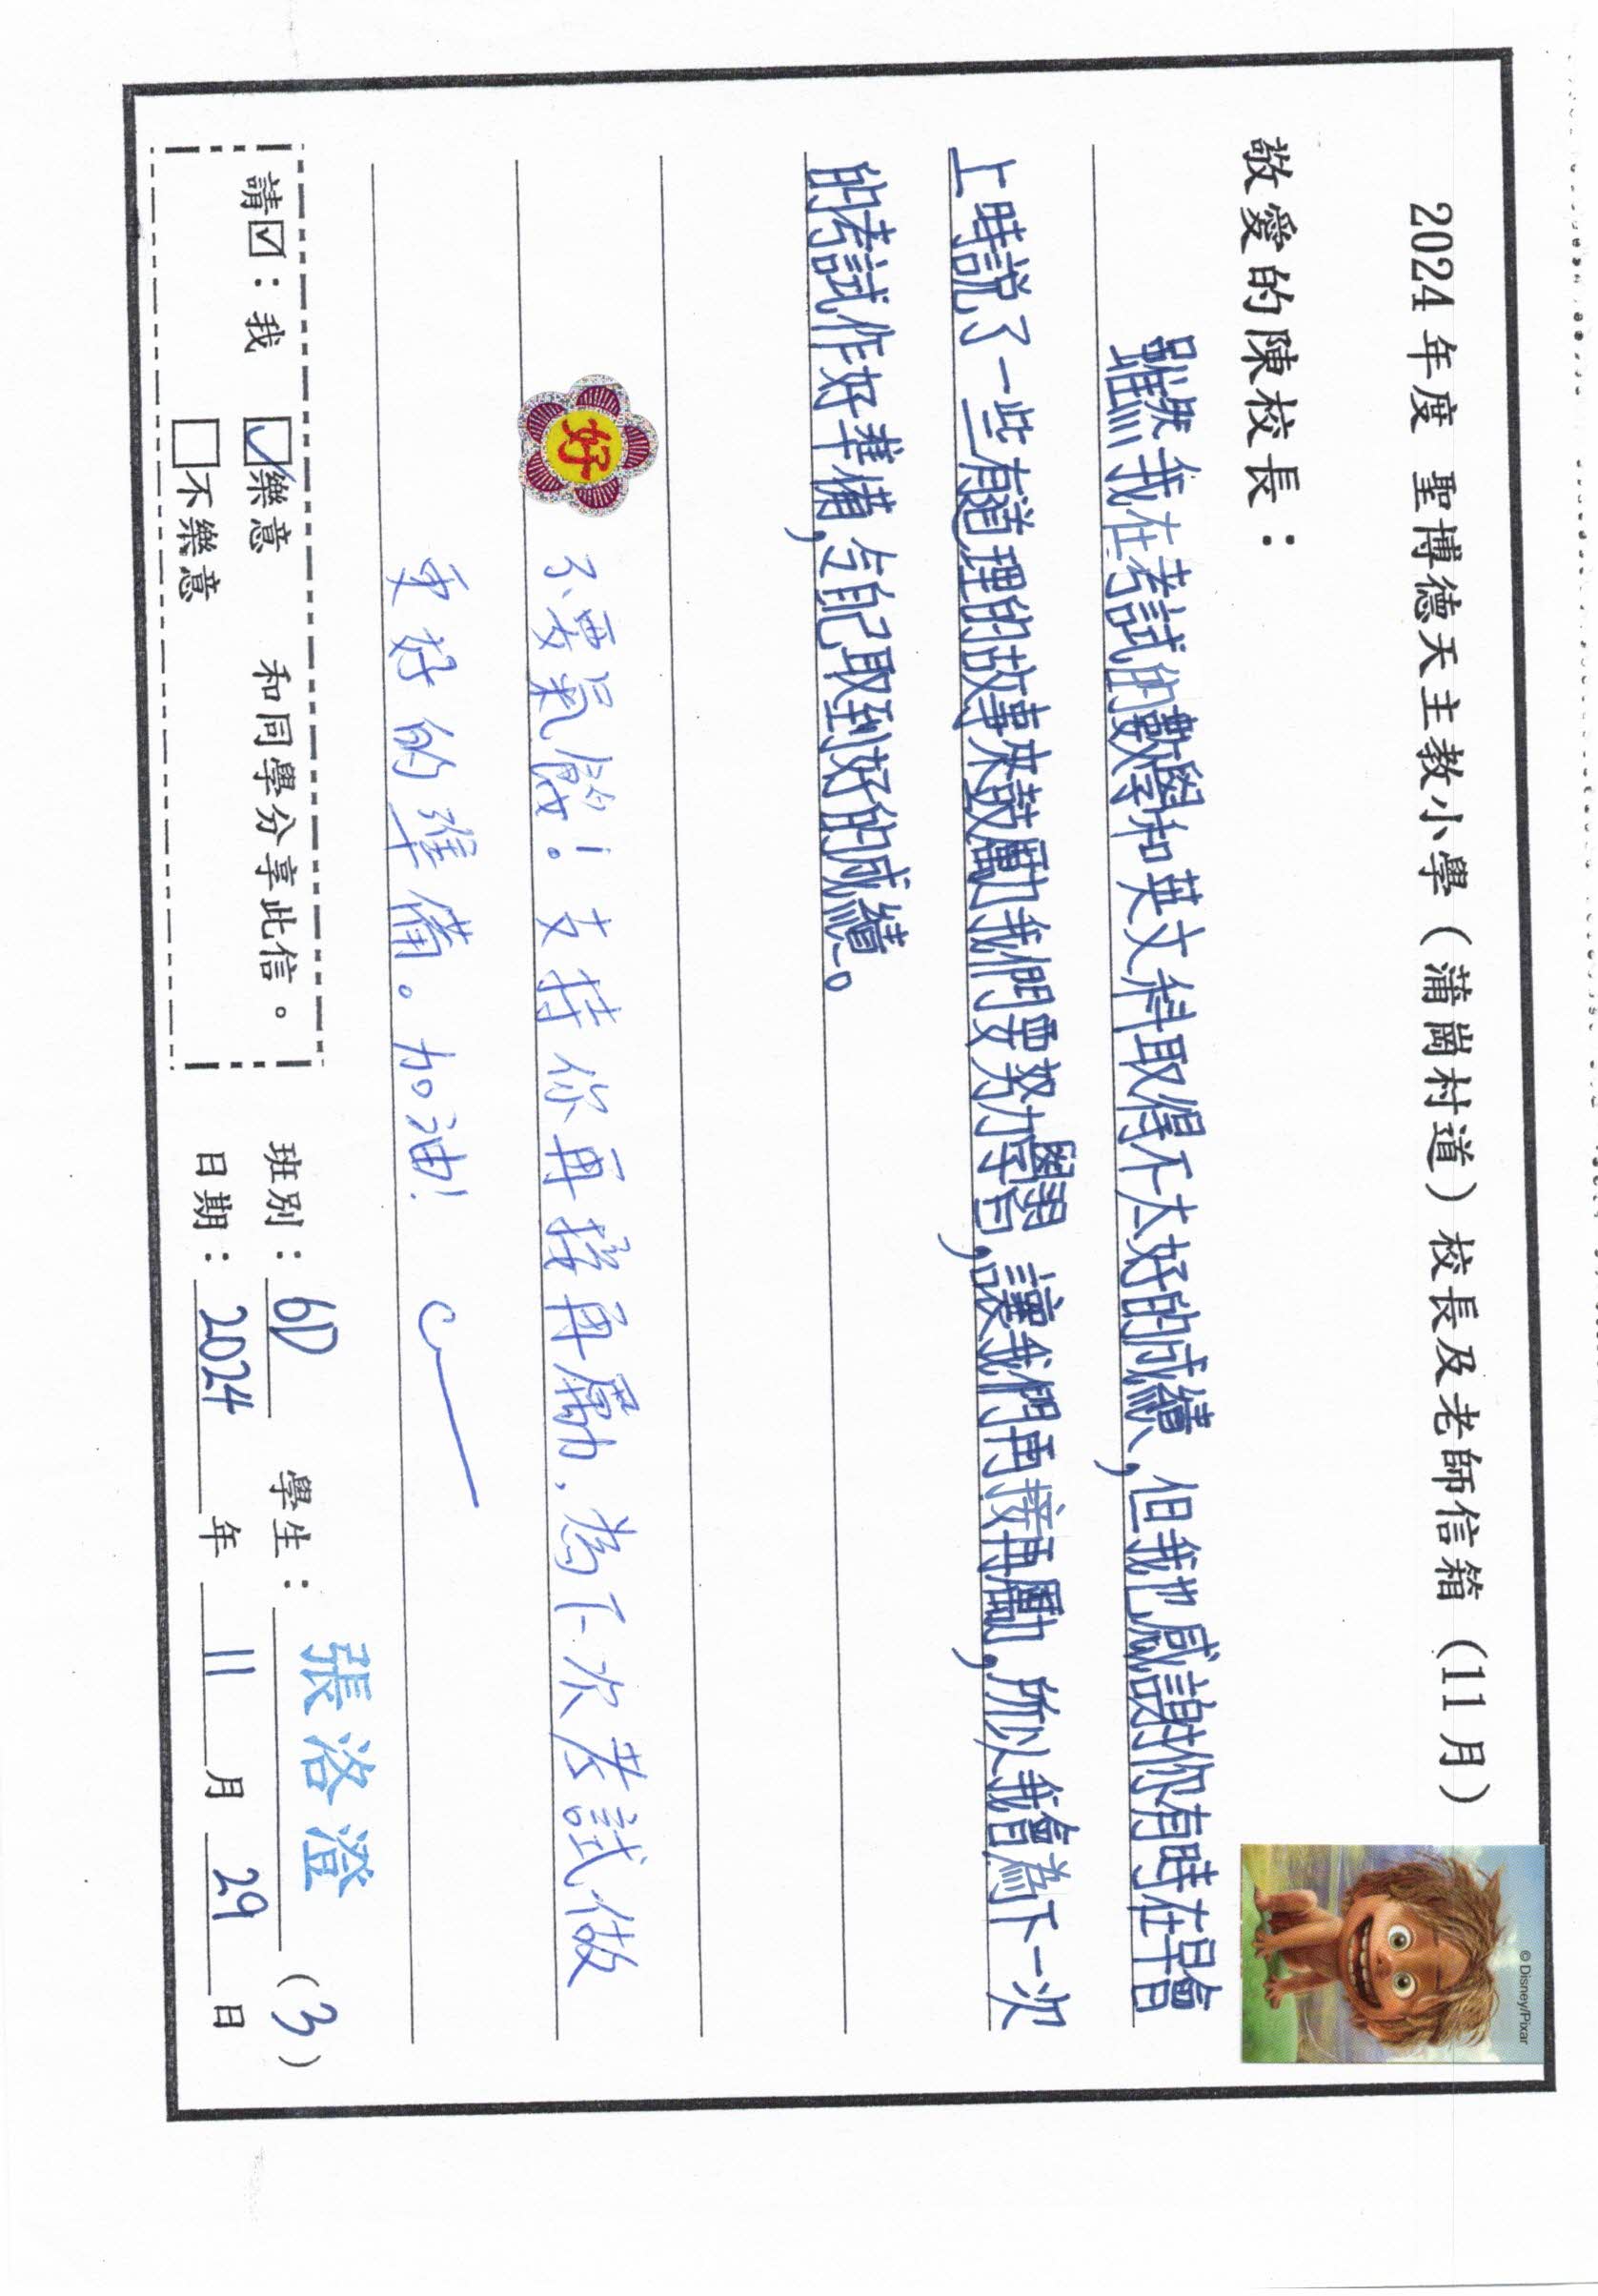 2024 年度 聖博德天主教小學（蒲崗村道）校長及老師信箱（11 月）
©Disney/Pixar
敬愛的陳校長：
雖然我在考試的數學和英文科取得不太好的成績，但我也感謝你有時在早會
上時説了一些有道理的故事來鼓勵我們要努力學習，讓我們再接再勵，所以我會為下一次
的考試作好準備，令自己取到好的成績。
好
不要氣餒！支持你再接再勵，為下次考試做
更好的準備。加油！
請☑：我 ☑樂意 和同學分享此信。
□不樂意
班別：6D 學生：張洛澄（3）
日期：2024 年 11 月 29 日